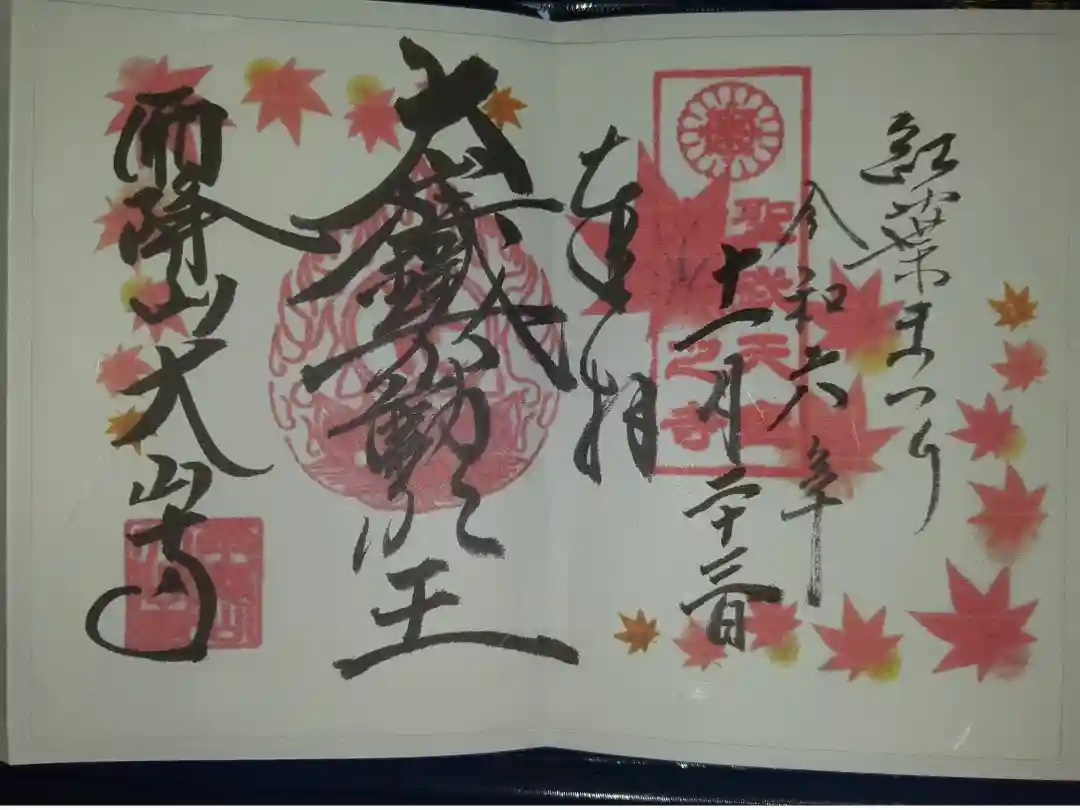 紅葉まつり
令和六年
十一月二十三日
聖武天皇
之寺
奉拝
大山鐵不動明王
雨降山大山寺